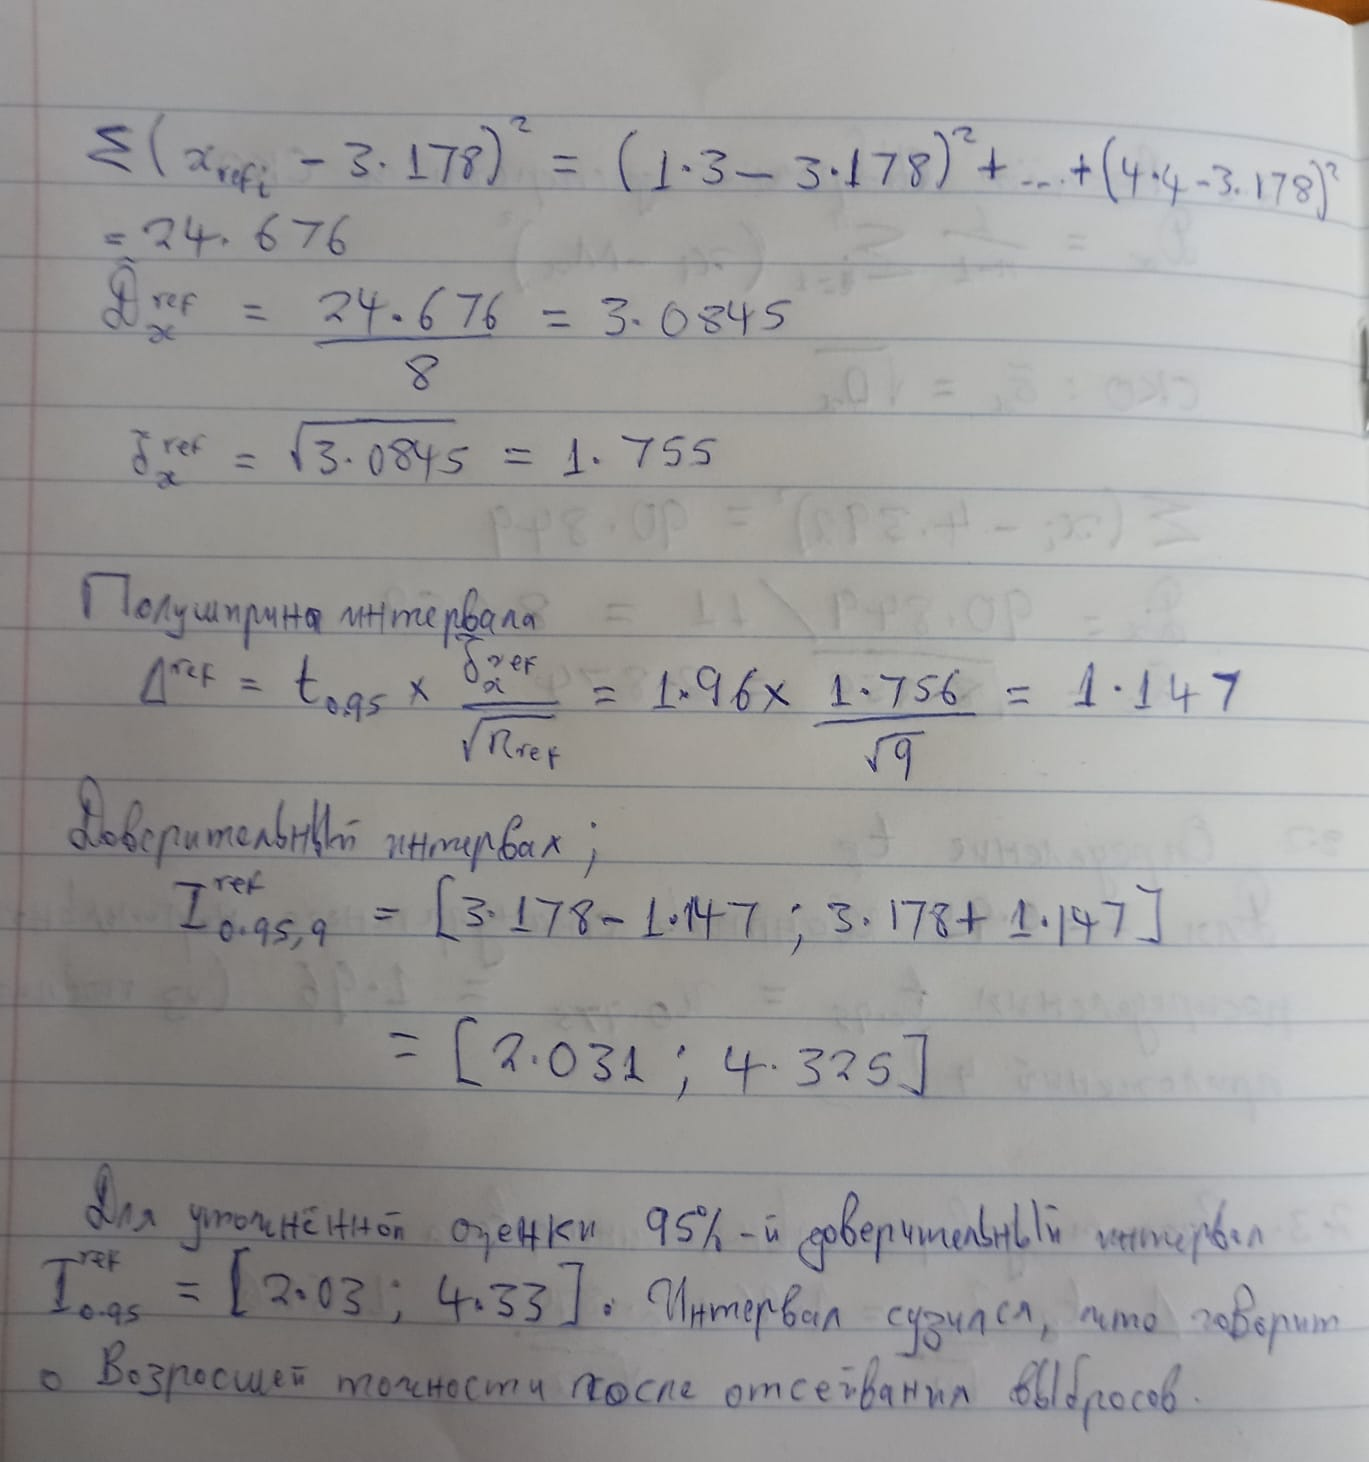 Σ(x_refi - 3.178)² = (1.3 - 3.178)² + ... + (4.4 - 3.178)²
= 24.676
D̃_x^ref = 24.676 / 8 = 3.0845
σ̃_x^ref = √3.0845 = 1.755
Полуширина интервала
Δ^ref = t_0.95 × σ̃_x^ref / √n_ref = 1.96 × 1.756 / √9 = 1.147
Доверительный интервал;
I_0.95,9^ref = [3.178 - 1.147 ; 3.178 + 1.147]
= [2.031 ; 4.325]
Для уточнённой оценки 95%-й доверительный интервал
I_0.95^ref = [2.03 ; 4.33]. Интервал сузился, что говорит
о Возросшей точности после отсеивания выбросов.